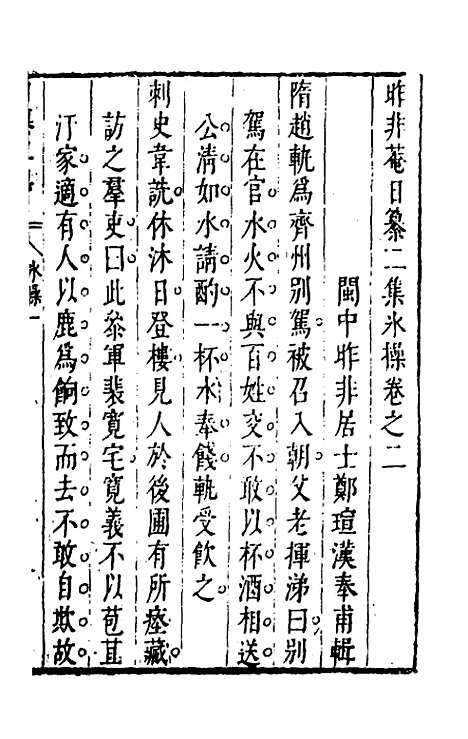 昨非菴日纂二集氷操卷之二
閩中昨非居士鄭瑄漢奉甫輯
隋趙軌爲齊州别駕被召入朝父老揮涕曰别
駕在官水火不與百姓交不敢以杯酒相送
公淸如水請酌一杯水奉餞軌受飮之
刺史韋詵休沐日登樓見人於後圃有所瘞藏
訪之羣吏曰此參軍裴寬宅寬義不以苞苴
汙家適有人以鹿爲餉致而去不敢自欺故
氷操一